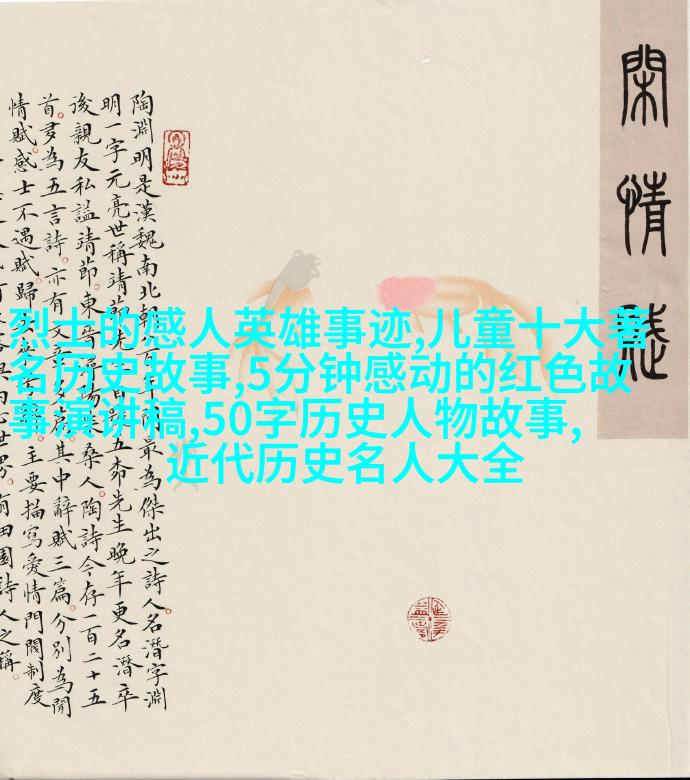 閑情
陶淵明是漢魏南北朝百年最為傑出之詩人名潛字淵
明一字元亮世稱靖節先生五柳先生晚年更名潛卒
後親友私謚靖節東晉桑人陶詩今存一百二十五
首多為五言詩亦有文其中辭賦三篇分別為閒
情賦感士不遇賦歸主要描寫愛情門閥制度
田園詩人之稱
烈士的感人英雄事迹,儿童十大著
名历史故事,5分钟感动的红色故
事演讲稿,50字历史人物故事,
近代历史名人大全